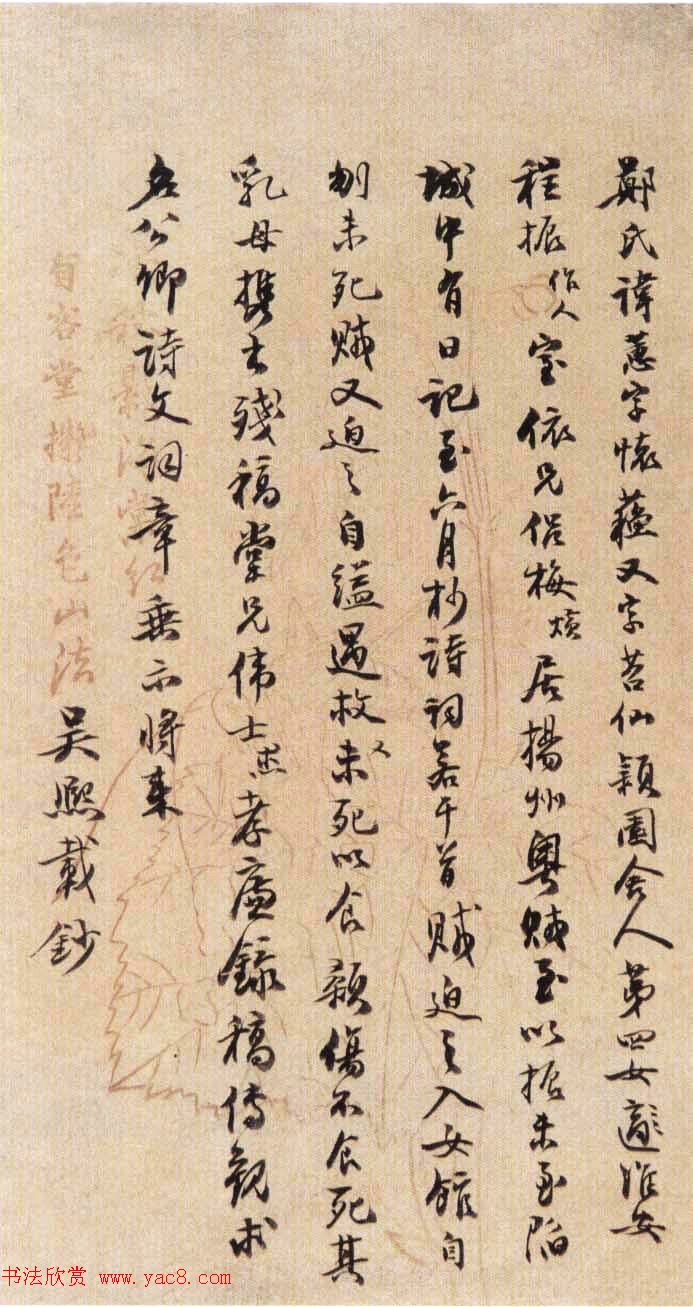 鄭氏諱蕙字懷蘐又字苕仙穎園舍人第四女適淮安
程振作人室依兄侶梅燌居揚州粵賊至以振未至陷
城中有日記至六月杪詩詞若干首賊迫之入女館自
刎未死賊又迫之自縊遇救又未死以食頦傷不食死其
乳母攜出殘稿堂兄偉士孝廉錄稿傳觀求
名公卿詩文詞章垂示將來
吳熙載鈔
百谷堂撫陸包山法
书法欣赏 www.yac8.com